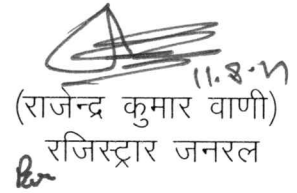 11.8.21
(राजेन्द्र कुमार वाणी)
रजिस्ट्रार जनरल